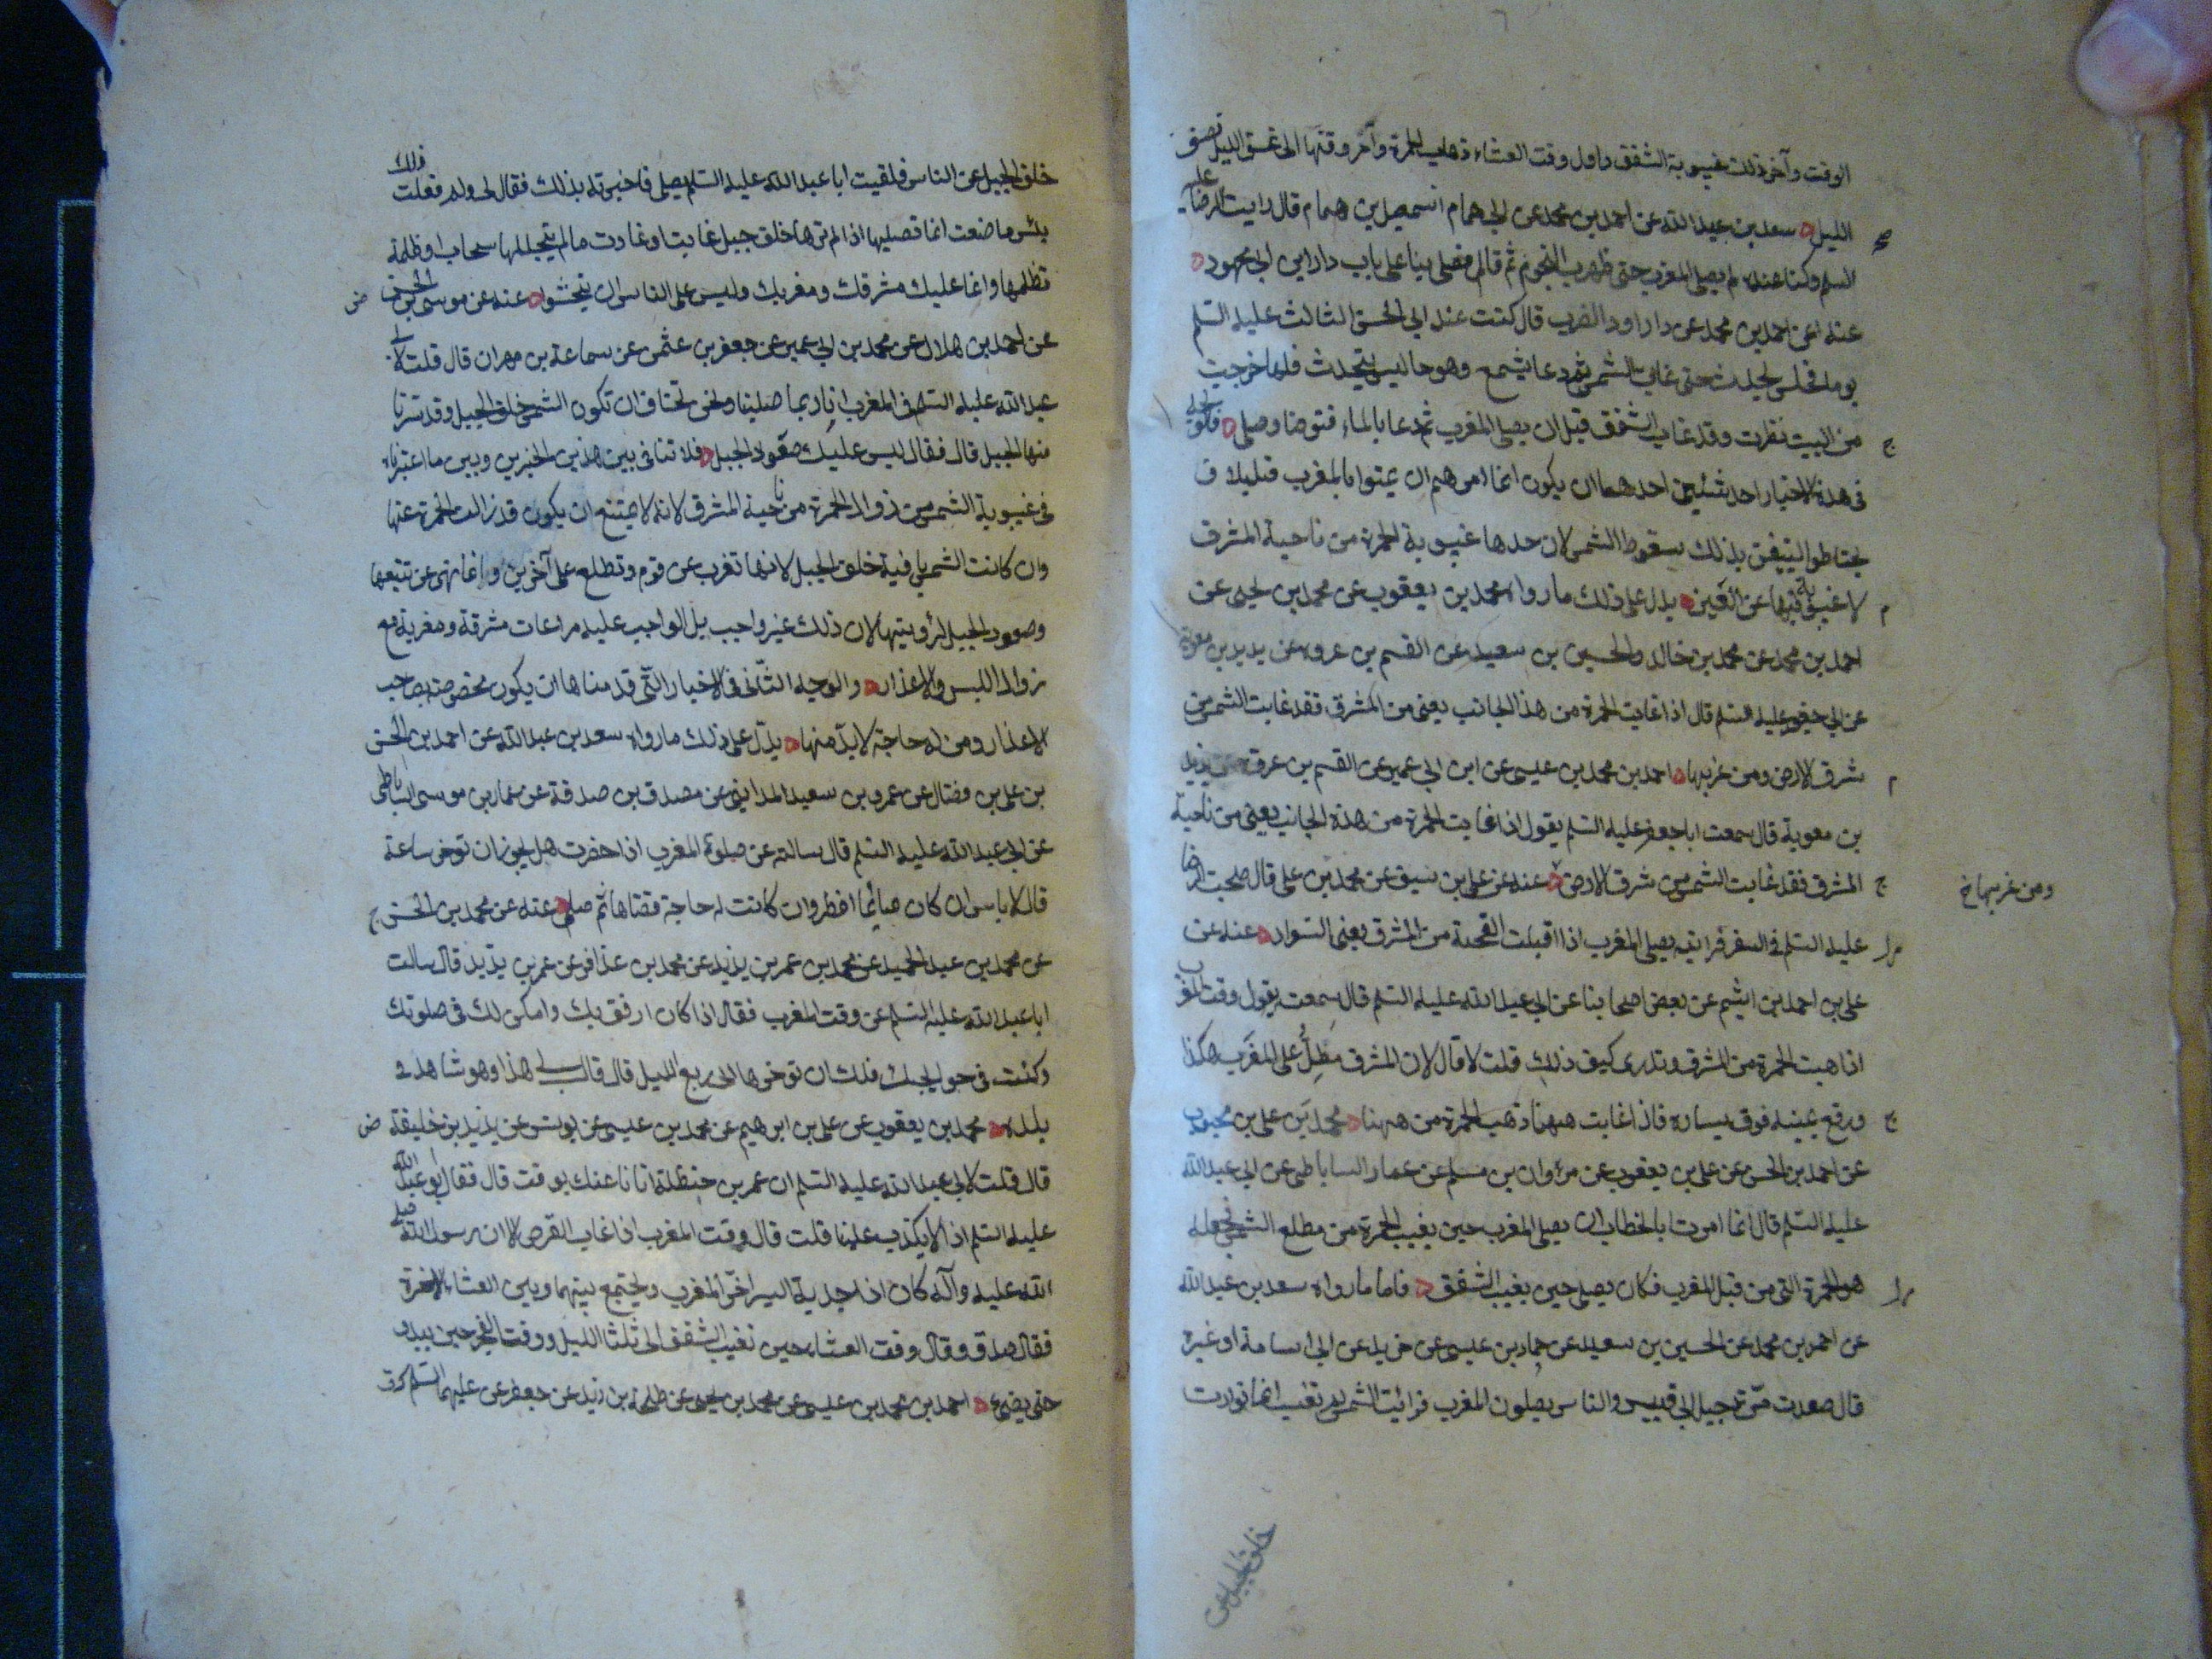 الوقت وآخر ذلك غيبوبة الشفق واول وقت العشاء ذهاب الحمرة وآخر وقتها الى غسق الليل نصف
الليل سعد بن عبد الله عن احمد بن محمد عن ابى همام اسمعيل بن همام قال رايت الرضا عليه
السلم وكنا عنده لم يصلى المغرب حتى ظهرت النجوم ثم قال فصلى بنا على باب دار ابن ابى محمود
عنه عن احمد بن محمد عن داراود الضرب قال كنت عند ابى الحسن الثالث عليه السلم
يوما فجلس يحدث حتى غابت الشمس ثم دعا بشمع وهو جالس يتحدث فلما خرجت
من البيت نظرت وقد غاب الشفق قبل ان يصلى المغرب ثم دعا بالماء فتوضا وصلى فالوجه
فى هذه الاخبار احد شيئين احدهما ان يكون انما امرهم ان يمسوا بالمغرب قليلا و
يحتاطوا ليتيقن بذلك سقوط الشمس لان حدها غيبوبة الحمرة من ناحية المشرق
لا غيبوبتها عن العين يدل على ذلك ما رواه محمد بن يعقوب عن محمد بن يحيى عن
احمد بن محمد عن محمد بن خالد والحسين بن سعيد عن القسم بن عروه عن بريد بن معوية
عن ابى جعفر عليه السلم قال اذا غابت الحمرة من هذا الجانب يعنى من المشرق فقد غابت الشمس من
شرق الارض ومن غربها احمد بن محمد بن عيسى عن ابن ابى عمير عن القسم بن عروة عن بريد
بن معوية قال سمعت ابا جعفر عليه السلم يقول اذا غابت الحمرة من هذه الجانب يعنى من ناحية
المشرق فقد غابت الشمس من شرق الارض عنه عن على بن سيف عن محمد بن على قال صحبت الرضا
ومن غربها خ
عليه السلم فى السفر فرايته يصلى المغرب اذا اقبلت الفحمة من المشرق يعنى السواد عنه عن
على بن احمد بن اشيم عن بعض اصحابنا عن ابى عبد الله عليه السلم قال سمعته يقول وقت المغرب
اذا ذهبت الحمرة من المشرق وتدرى كيف ذلك قلت لا قال لان المشرق مطل على المغرب هكذا
ورفع يمينه فوق يساره فاذا غابت ههنا ذهبت الحمرة من ههنا محمد بن على بن محبوب
عن احمد بن الحسن عن على بن يعقوب عن مروان بن مسلم عن عمار الساباطى عن ابى عبد الله
عليه السلم قال انما امرت ابا الخطاب ان يصلى المغرب حين يغيب الحمرة من مطلع الشمس فجعله
هو الحمرة التى من قبل المغرب فكان يصلى حين يغيب الشفق فاما ما رواه سعد بن عبد الله
عن احمد بن محمد عن الحسين بن سعيد عن حماد بن عيسى عن حريز عن ابى اسامة او غيره
قال صعدت مرة جبل ابى قبيس والناس يصلون المغرب فرايت الشمس لم تغب انما توارت
خلف الجبل عن
خلف الجبل عن الناس فلقيت ابا عبد الله عليه السلم يصلى فاخبرته بذلك فقال لى ولم فعلت ذلك
بئس ما صنعت انما تصليها اذا لم ترها خلف جبل غابت او غارت ما لم يتجللها سحاب او ظلمة
تظلمها وانما عليك مشرقك ومغربك وليس على الناس ان يبحثوا عنه عن موسى بن الحسن
عن احمد بن هلال عن محمد بن ابى عمير عن جعفر بن عثمن عن سماعة بن مهران قال قلت لابى
عبد الله عليه السلم فى المغرب انا ربما صلينا ونحن نخاف ان تكون الشمس خلف الجبل وقد سترنا
منها الجبل قال فقال ليس عليك صعود الجبل فلا تنافى بين هذين الخبرين وبين ما اعتبرناه
فى غيبوبة الشمس من زوال الحمرة من ناحية المشرق لانه لا يمتنع ان يكون قد زالت الحمرة عنها
وان كانت الشمس باقية خلف الجبل لانها تغرب عن قوم وتطلع على آخرين وانما نهى عن تتبعها
وصعود الجبل لرؤيتها لان ذلك غير واجب بل الواجب عليه مراعات مشرقه ومغربه مع
زوال اللبس والاعذار والوجه الثانى فى الاخبار التى قدمناها ان يكون مخصوصة بصاحب
الاعذار ومن له حاجة لابد منها يدل على ذلك ما رواه سعد بن عبد الله عن احمد بن الحسن
بن على بن فضال عن عمرو بن سعيد المداينى عن مصدق بن صدقة عن عمار بن موسى الساباطى
عن ابى عبد الله عليه السلم قال سالته عن صلوة المغرب اذا حضرت هل يجوز ان توخر ساعة
قال لا باس ان كان صائما افطر وان كانت له حاجة قضاها ثم صلى عنه عن محمد بن الحسن
عن محمد بن عبد الحميد عن محمد بن عمر بن يزيد عن محمد بن عذافر عن عمر بن يزيد قال سالت
ابا عبد الله عليه السلم عن وقت المغرب فقال اذا كان ارفق بك وامكن لك فى صلوتك
وكنت فى حوايجك فلك ان توخرها الى ربع الليل قال قال لى هذا وهو شاهد فى
بلده محمد بن يعقوب عن على بن ابرهيم عن محمد بن عيسى عن يونس عن يزيد بن خليفة
قال قلت لابى عبد الله عليه السلم ان عمر بن حنظلة اتانا عنك بوقت قال فقال ابو عبد الله
عليه السلم اذا لا يكذب علينا قلت قال وقت المغرب اذا غاب القرص الا ان رسول الله صلى
الله عليه وآله كان اذا جد به السير اخر المغرب ويجمع بينهما وبين العشاء الاخرة
فقال صدق وقال وقت العشاء حين تغيب الشفق الى ثلث الليل ووقت الفجر حين يبدو
حتى يضئ احمد بن محمد بن عيسى عن محمد بن يحيى عن طلحة بن زيد عن جعفر عن عليهما السلم